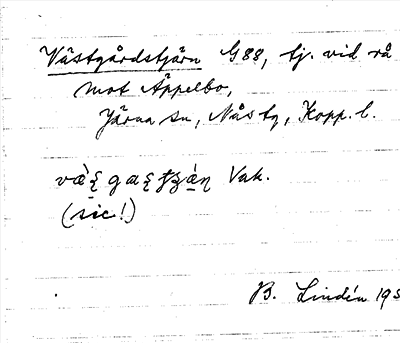 Västgårdstjärn G88, tj. vid rå
mot Äppelbo,
Järna sn, Nås tg, Kopp. l.
Vak.
(sic!)
B. Lindén 193